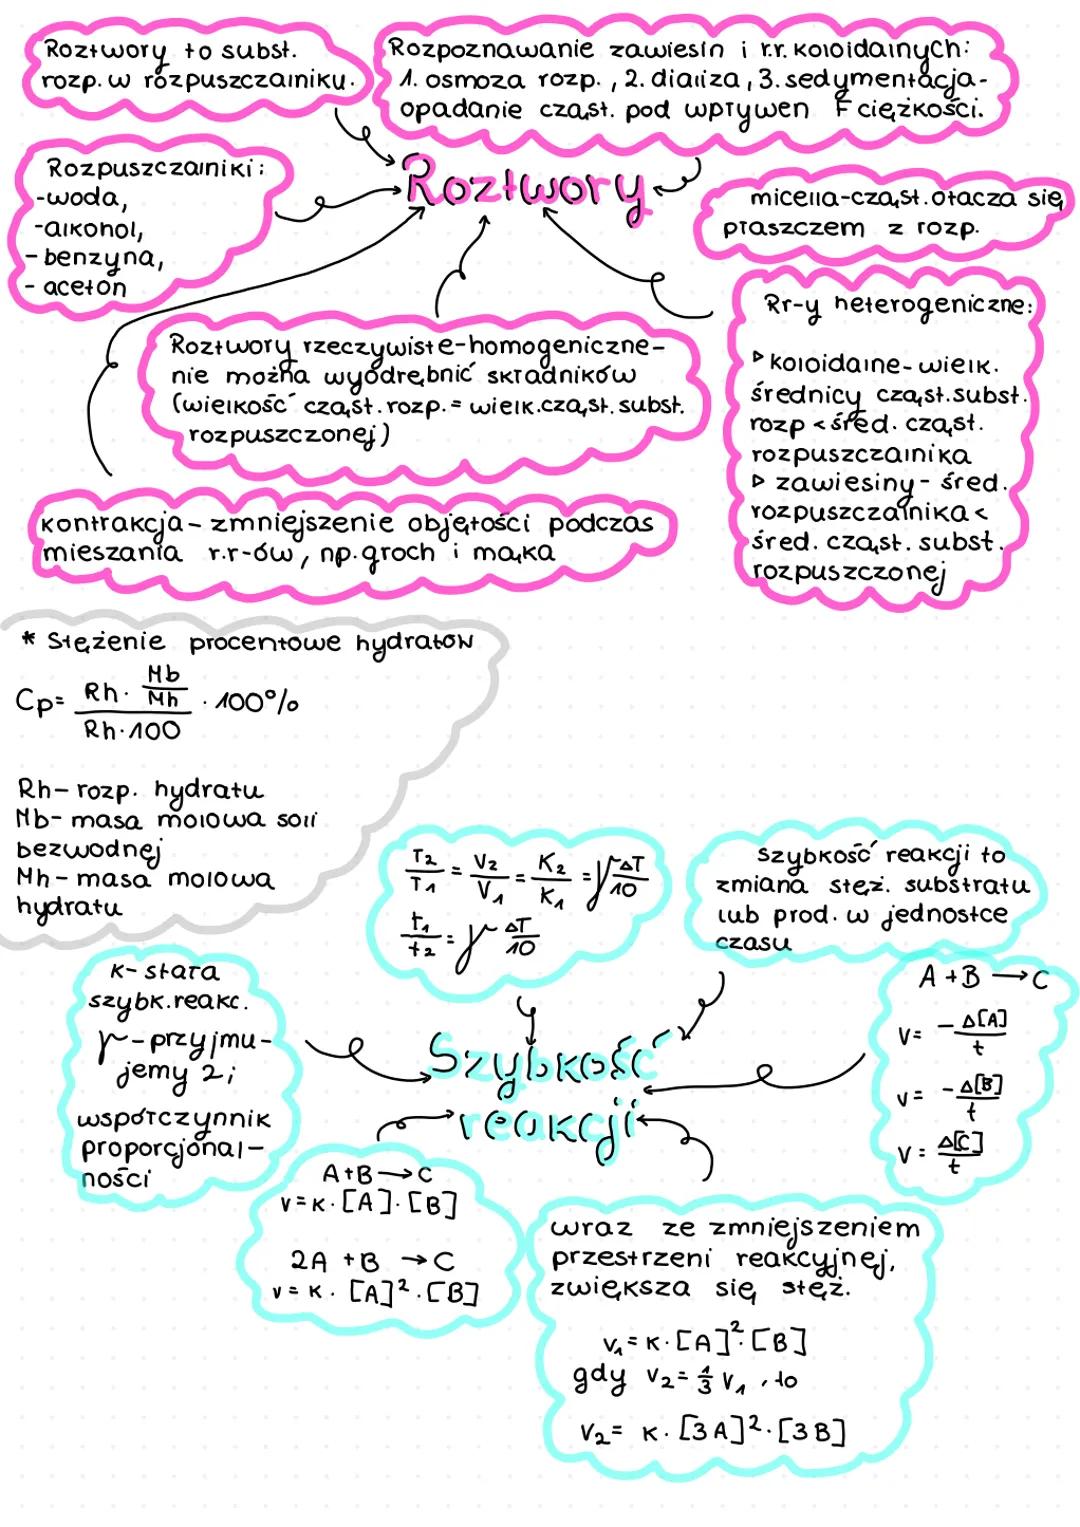 Roztwory to subst.
rozp. w rozpuszczalniku.
Rozpoznawanie zawiesin i r.r. koloidalnych:
1. osmoza rozp., 2. dializa, 3. sedymentacja-
opadanie cząst. pod wpływen F ciężkości.
Rozpuszczalniki:
-woda,
-alkohol,
-benzyna,
- aceton
Roztwory
micella-cząst. otacza się
płaszczem z rozp.
Roztwory rzeczywiste-homogeniczne-
nie możha wyodrębnić składników
(wielkość cząst. rozp. = wielk. cząst. subst.
rozpuszczonej)
Rr-y heterogeniczne:
▷ koloidalne- wielk.
średnicy cząst. subst.
rozp < śred. cząst.
rozpuszczalnika
▷ zawiesiny- śred.
rozpuszczalnika <
śred. cząst. subst.
rozpuszczonej
kontrakcja - zmniejszenie objętości podczas
mieszania r.r-ów, np. groch i mąka
* Stężenie procentowe hydratów
Cp= Rh · Mb/Mh / Rh·100 · 100%
Rh- rozp. hydratu
Mb- masa molowa soli
bezwodnej
Mh - masa molowa
hydratu
T2/T1 = V2/V1 = K2/K1 = γ ΔT/10
t1/t2 = γ ΔT/10
szybkość reakcji to
zmiana stęż. substratu
lub prod. w jednostce
czasu
K- stała
szybk. reakc.
γ - przyjmu-
jemy 2;
współczynnik
proporcjonal-
ności
Szybkość
reakcji
A + B → C
V= -Δ[A]/t
V= -Δ[B]/t
V= Δ[C]/t
A+B → C
V= K·[A]·[B]
2A + B → C
V= K·[A]²·[B]
wraz ze zmniejszeniem
przestrzeni reakcyjnej,
zwiększa się stęż.
V1= K·[A]²·[B]
gdy V2= 1/3 V1, to
V2= K·[3A]²·[3B]